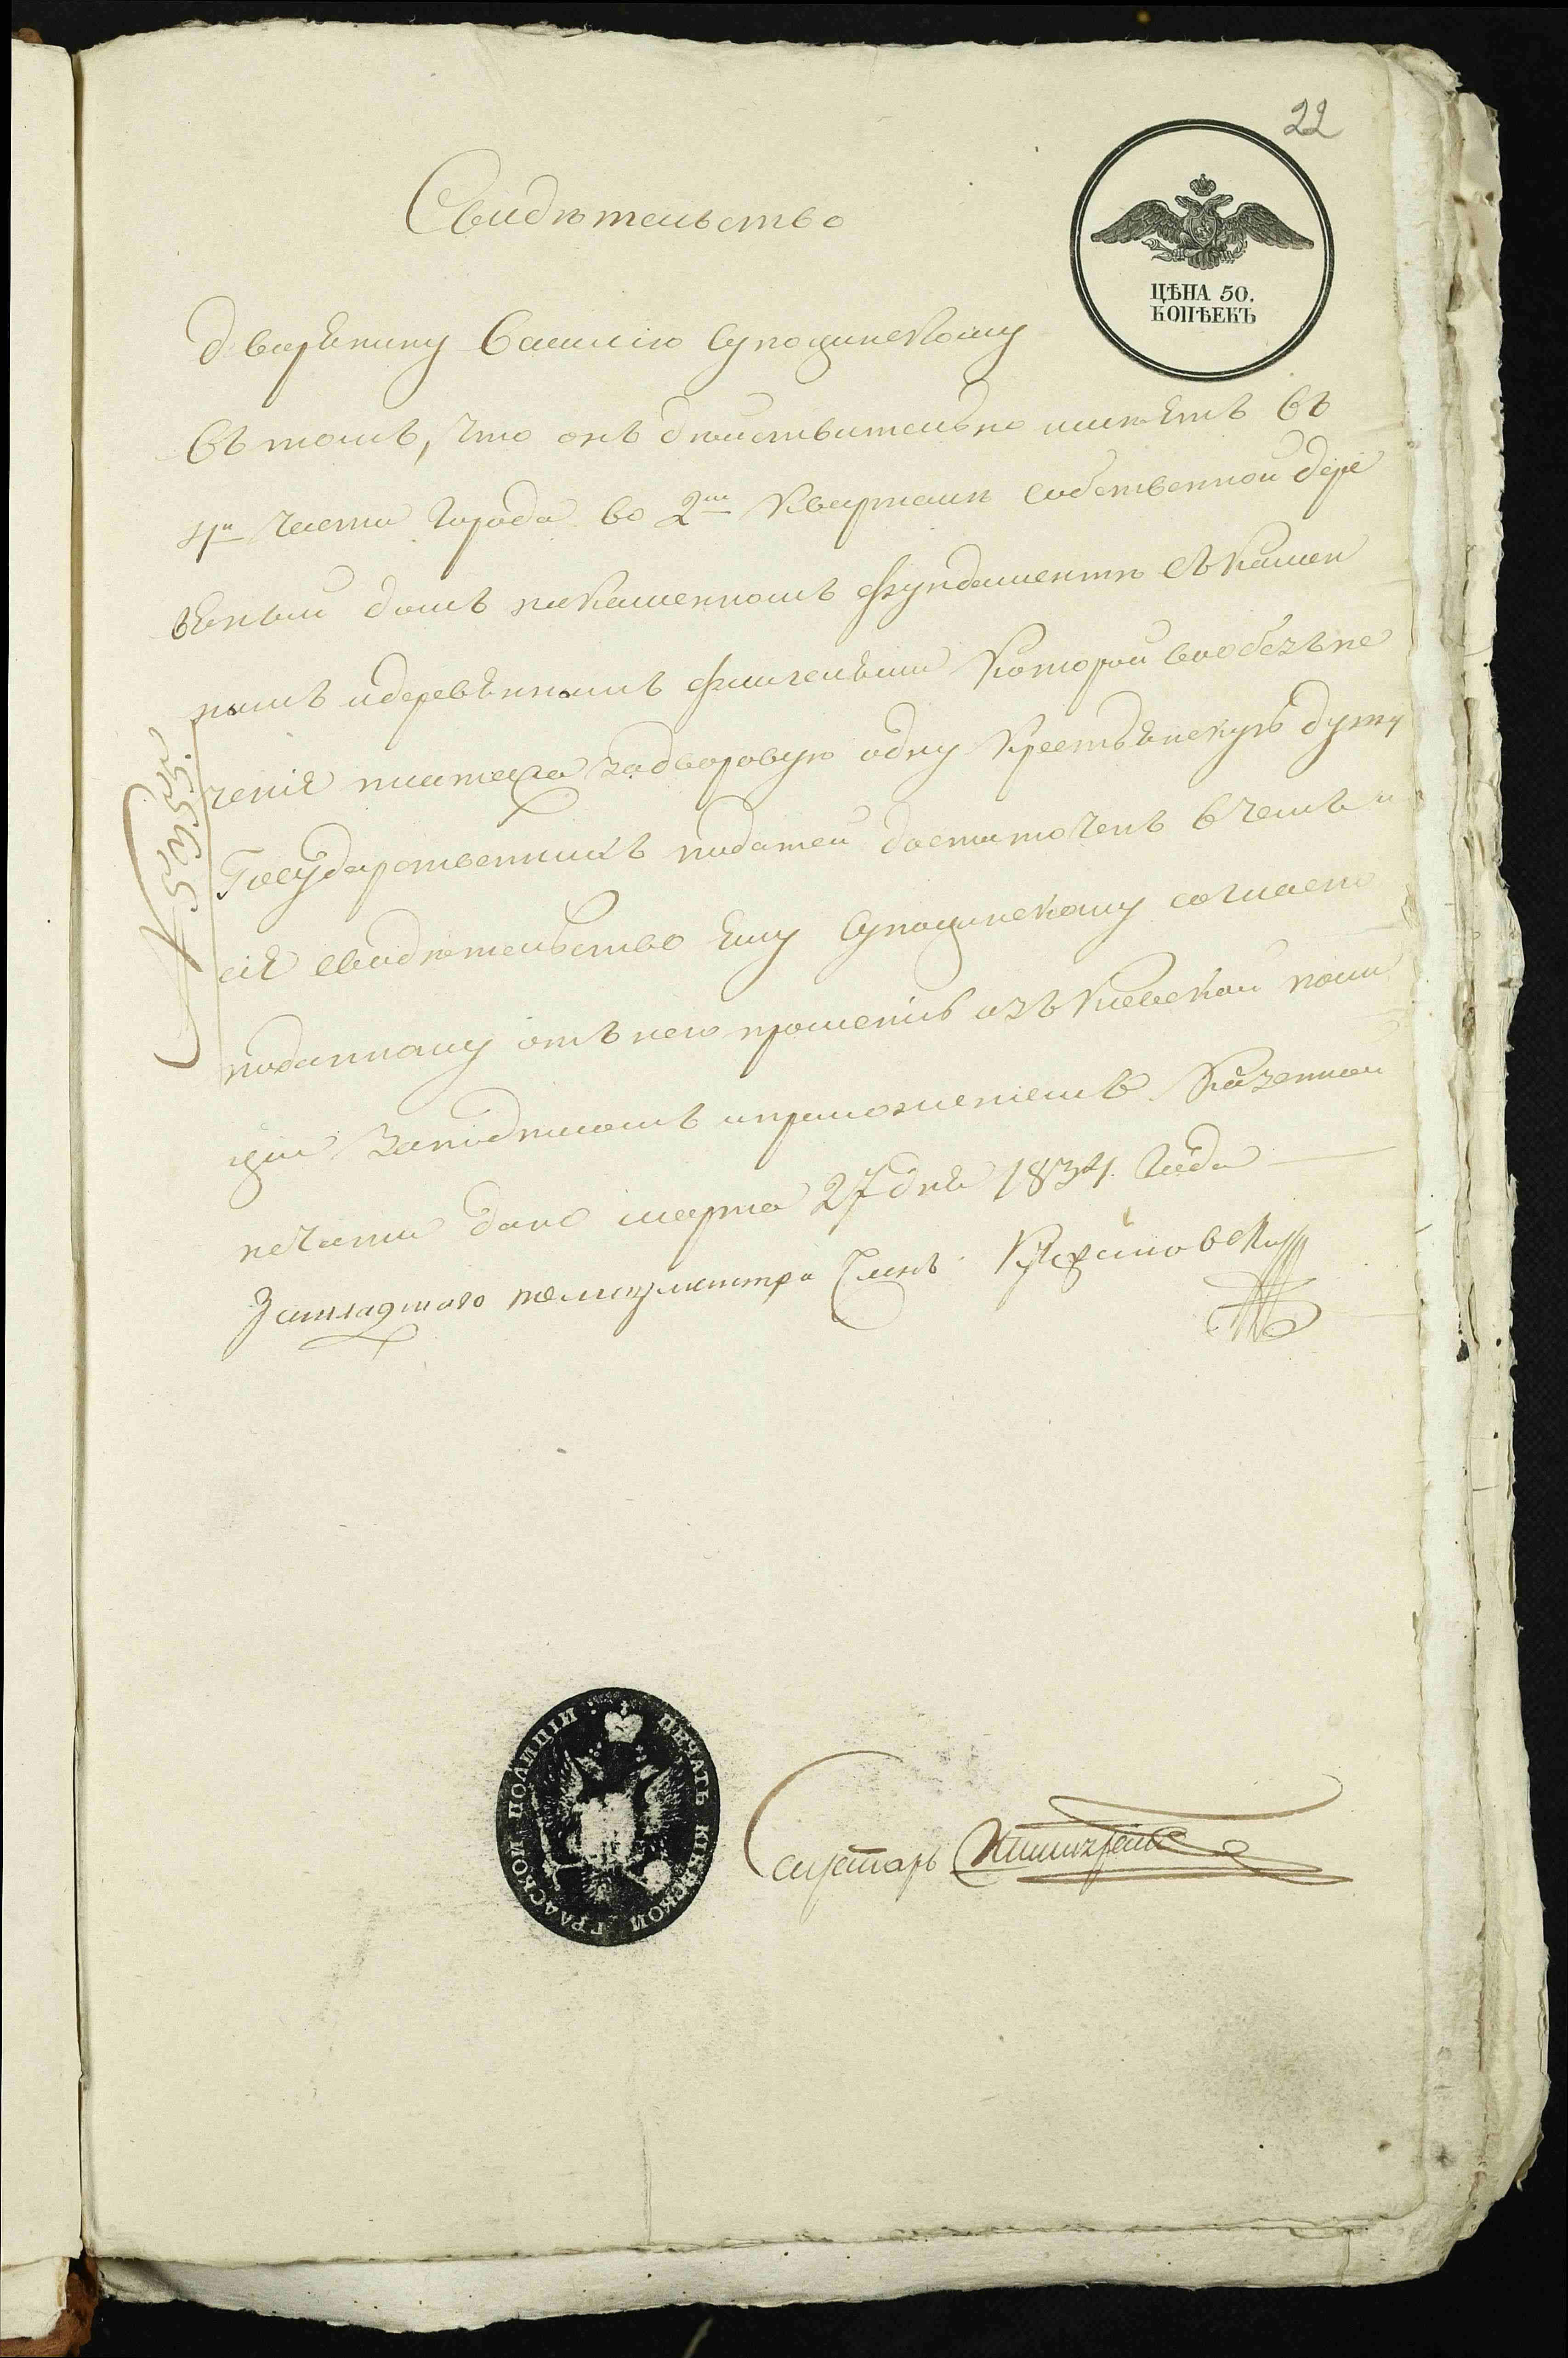 22
ЦѢНА 50.
КОПѢЕКЪ
Свидѣтельство
дварянину Василію Суподинскому
въ томъ, что онъ дѣйствительно имѣетъ въ
4й части города во 2мъ кварталѣ собственной дере
вяный домъ накаменномъ фундаментѣ съ камен
нымъ идеревяннымъ флигелями которой вообезъпе
ченія платежа задворовую одну крестьянскую душу
Государственныхъ податей достаточенъ вчемъ и
сіе свидѣтельство ему Суподинскому согласно
поданному отъ него прошенію изъ Кіевской поли
ціи заподписомъ иприложеніемъ казенной
печати дано марта 27 дня 1834 года
За младшаго полицмейстра Членъ
Секретарь
ПЕЧАТЬ КІЕВСКОЙ ГРАДСКОЙ ПОЛИЦІИ